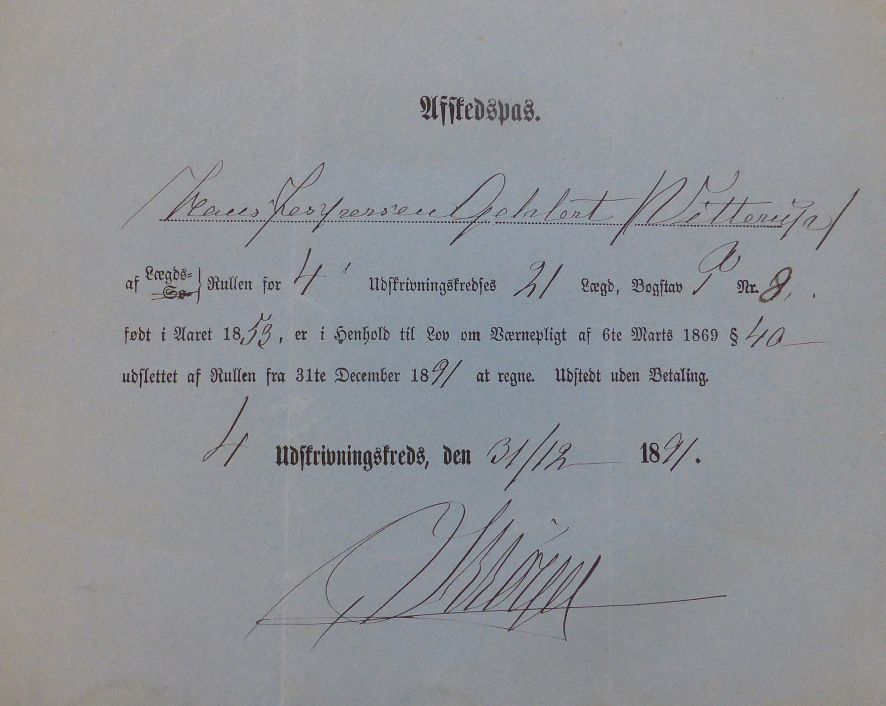 Afskedspas.
Hans Jespersen Gehlert /Vitterup/
af Lægds= Rullen for 4' Udskrivningskredses 21 Lægd, Bogstav Nr. 8.
Sø=
født i Aaret 1853, er i Henhold til Lov om Værnepligt af 6te Marts 1869 § 40
udslettet af Rullen fra 31te December 1891 at regne. Udstedt uden Betaling.
4 Udskrivningskreds, den 31/12 1891.